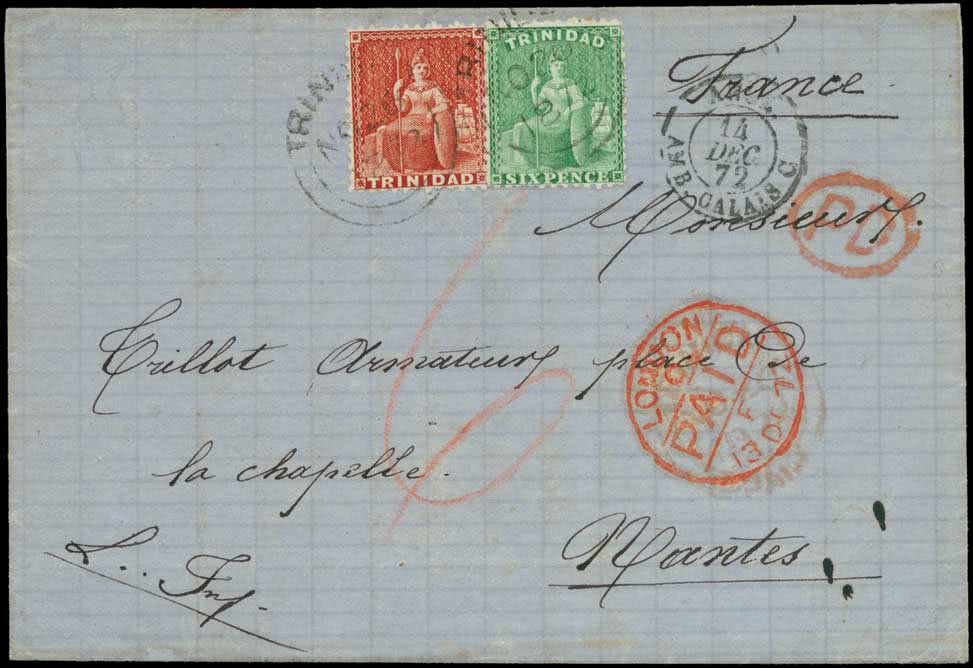 TRINIDAD
TRINIDAD
SIX PENCE
France
14
DEC
72
AMB. CALAIS C
PD
Monsieur
LONDON
PAID
13 DE 72
Trillot Armateur place De
la chapelle.
Nantes
6